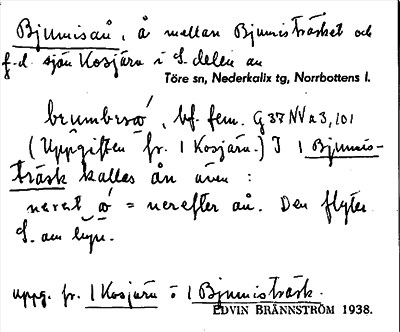 Bjumisån, å mellan Bjumisträsket och
f.d. sjön Kosjärn i S. delen av
Töre sn, Nederkalix tg, Norrbottens l.
bf. fem. G 37 NV a 3, 101
(Uppgiften fr. 1 Kosjärn.) I 1 Bjumis-
träsk kallas ån även :
å = nerefter ån. Den flyter
S. om byn.
uppg. fr. 1 Kosjärn o 1 Bjumisträsk.
EDVIN BRÄNNSTRÖM 1938.